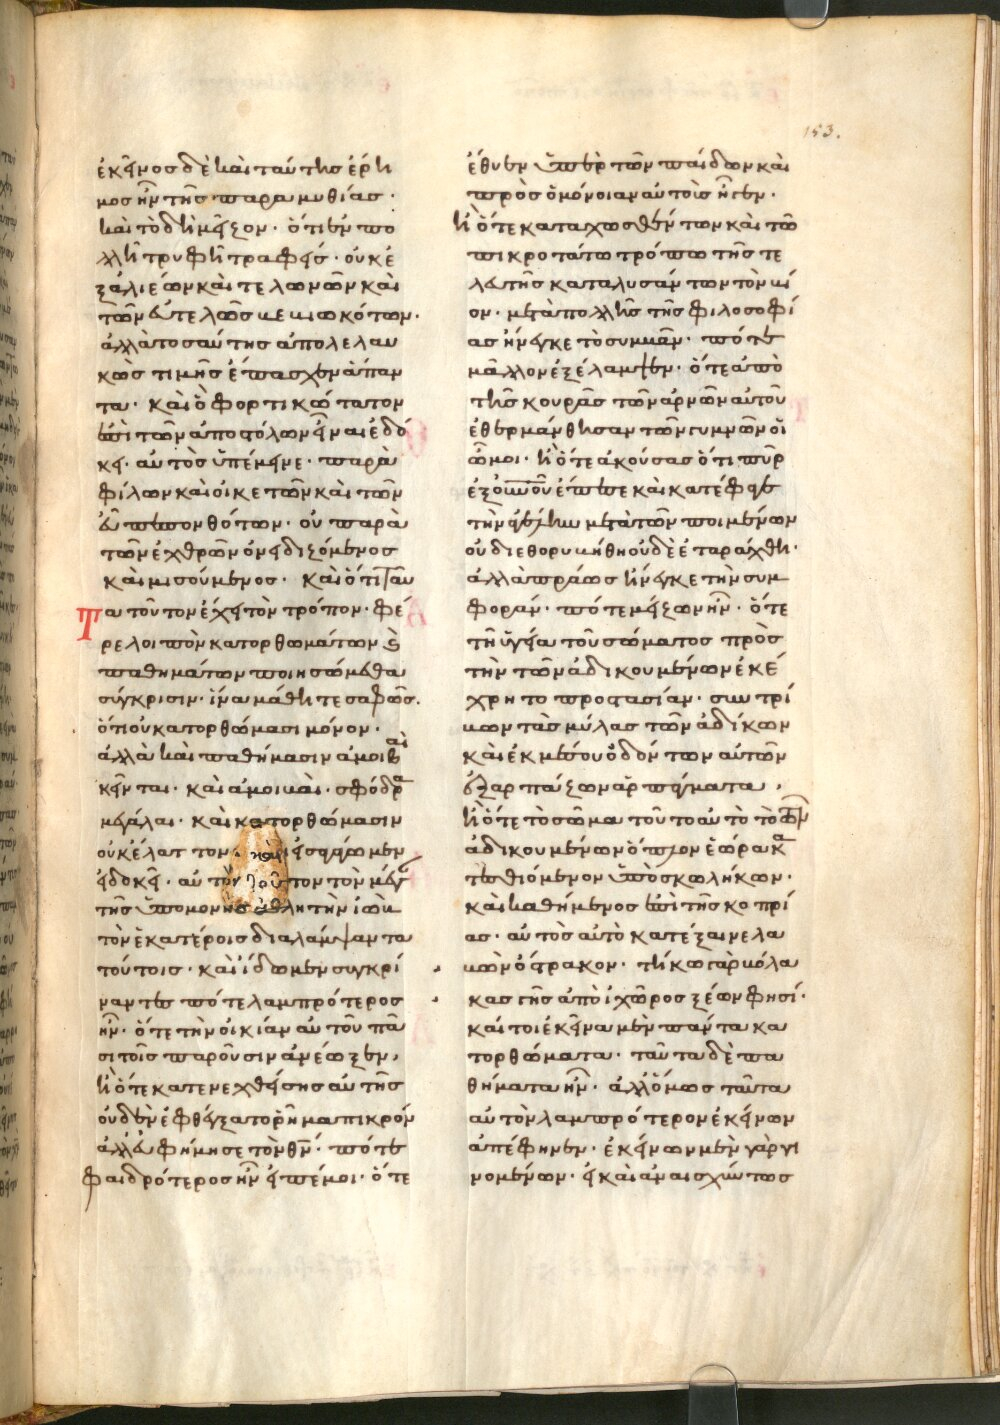 153.
ἐκεῖνος δὲ καὶ ταύτης ἔρη
μος ἦν τῆς παραμυθίας ·
καὶ τὸ δὴ μεῖζον · ὅτι ἐν πο
λλῇ τρυφῇ τραφείς · οὐκ ἐ
ξ ἁλιέων καὶ τελωνῶν καὶ
τῶν εὐτελῶς βεβιωκότων ·
ἀλλὰ τοσαύτης ἀπολελαυ
κὼς τιμῆς ἔπασχεν ἅπαν
τα · καὶ ὃ φορτικώτατον
ἐπὶ τῶν ἀποστόλων εἶναι ἐδό
κει · αὐτὸς ὑπέμεινε · παρὰ
φίλων καὶ οἰκετῶν καὶ τῶν
εὖ πεπονθότων · οὐ παρὰ
τῶν ἐχθρῶν ὀνειδιζόμενος
καὶ μισούμενος · καὶ ὅτι ταῦ
τα τοῦτον ἔχει τὸν τρόπον · φέ
ρε λοιπὸν κατορθωμάτων καὶ
παθημάτων ποιησώμεθα
σύγκρισιν · ἵνα μάθητε σαφῶς ·
ὅτι οὐ κατορθώμασι μόνον ·
ἀλλὰ καὶ παθήμασιν ἀμοιβαὶ
κεῖνται · καὶ ἀμοιβαὶ · σφόδρα
μεγάλαι · καὶ κατορθώμασιν
οὐκ ἔλαττον
ἐδόκει · αὐτὸν τοῦτον τὸν μέγαν
τῆς ὑπομονῆς ἀθλητὴν ἰὼβ
τὸν ἑκατέροις διαλάμψαντα
τούτοις · καὶ ἴδωμεν συγκρί
ναντες πότε λαμπρότερος
ἦν · ὅτε τὴν οἰκίαν αὐτοῦ πᾶ
σι τοῖς παροῦσιν ἀνέῳξεν,
ἢ ὅτε κατενεχθείσης αὐτῆς
οὐδὲν ἐφθέγξατο ῥῆμα πικρόν
ἀλλ' εὐφήμησε τὸν θν · πότε
φαιδρότερος ἦν εἰπέ μοι · ὅτε
ἔθυεν ὑπὲρ τῶν παίδων καὶ
πρὸς ὁμόνοιαν αὐτοὺς ἦγεν ·
ἢ ὅτε καταχωσθέντων καὶ τῶ
πικροτάτω τρόπω τῆς τε
λευτῆς καταλυσάντων τὸν βί
ον · μετὰ πολλῆς τῆς φιλοσοφί
ας ἤνεγκε τὸ συμβάν · πότε
μᾶλλον ἐξέλαμψεν · ὅτε ἀπὸ
τῆς κουρᾶς τῶν ἀρνῶν αὐτοῦ
ἐθερμάνθησαν τῶν γυμνῶν οἱ
ὦμοι · ἢ ὅτε ἀκούσας ὅτι πῦρ
ἐξ οὐνοῦ ἔπεσε καὶ κατέφαγε
τὴν ἀγέλην μετὰ τῶν ποιμένων
οὐ διεθορυβήθη οὐδὲ ἐταράχθη ·
ἀλλὰ πράως ἤνεγκε τὴν συμ
φοράν · πότε μείζων ἦν · ὅτε
τῆ ὑγεία τοῦ σώματος πρὸς
τὴν τῶν ἀδικουμένων ἐκέ
χρητο προστασίαν · συντρί
βων τὰς μύλας τῶν ἀδίκων
καὶ ἐκ μέσου ὀδόντων αὐτῶν
ἐξαρπάζων ἁρπάγματα ·
ἢ ὅτε τὸ σῶμα τοῦτο αὐτὸ τὸ τῶν
ἀδικουμένων ὅπλον ἑώρακα
τεσθιόμενον ὑπὸ σκωλήκων ·
καὶ καθήμενος ἐπὶ τῆς κοπρί
ας · αὐτὸς αὐτὸ κατέξαινε λα
βὼν ὄστρακον · τήκω γὰρ βόλα
κας γῆς ἀπὸ ἰχῶρος ξέων φησί ·
καίτοι ἐκεῖνα μὲν πάντα κα
τορθώματα · ταῦτα δὲ πα
θήματα ἦν · ἀλλ' ὅμως ταῦτα
αὐτὸν λαμπρότερον ἐκείνων
ἀπέφηνεν · ἐκείνων μὲν γὰρ γι
νομένων · εἰ καὶ ἀναισχύντως